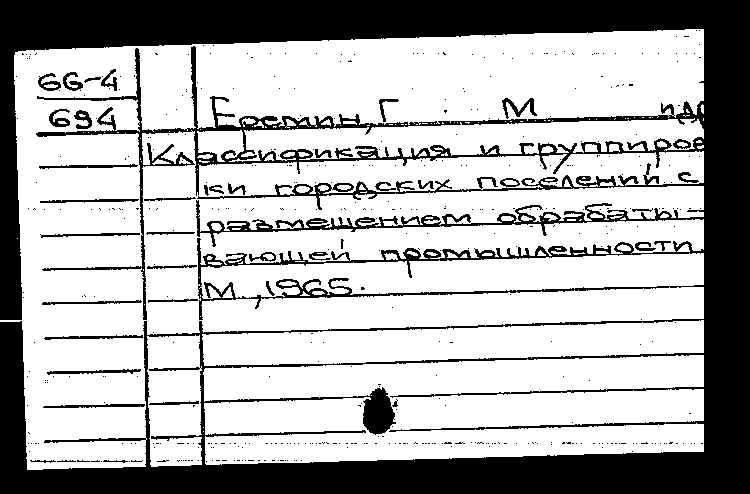 66-4
694
Еремин, Г. М и др
Классификация и группиров
ки городских поселений с
размещением обрабаты-
вающей промышленности.
М., 1965.